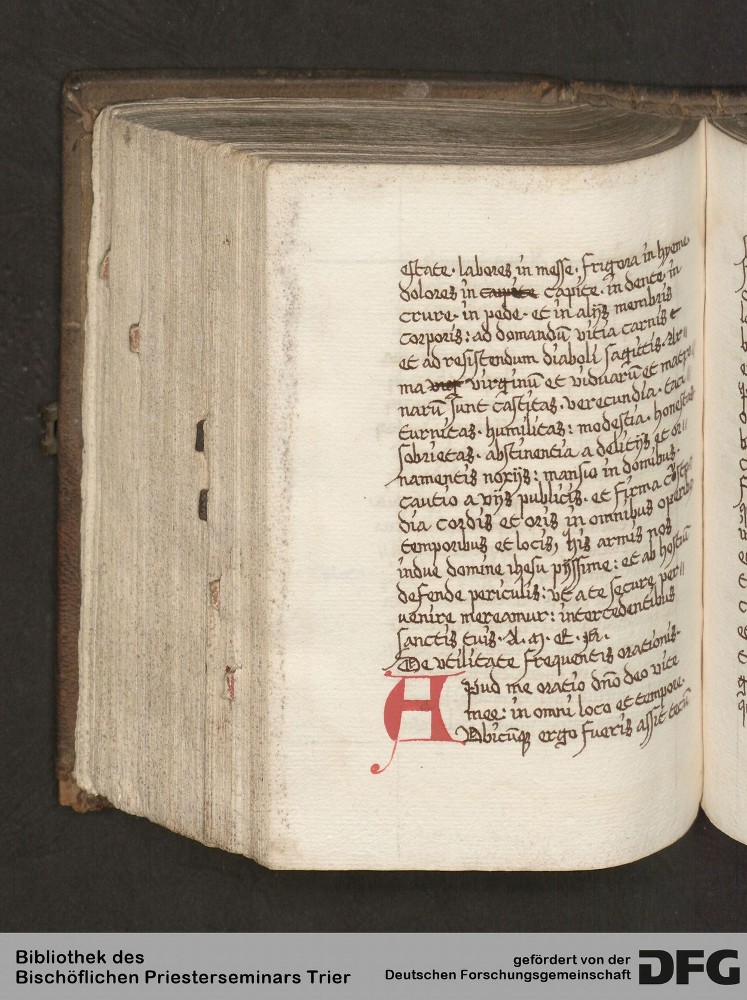 estate · labores in messe · frigora in hyeme
dolores in capite capite · in dente · in
crure · in pede · et in alijs membris
corporis : ad domandū vitia carnis et
et ad resistendum diaboli sagittis · Ar
ma virginū et viduarū et matro
narū sunt castitas · verecundia · taci
turnitas · humilitas : modestia · honestas
sobrietas · abstinentia a delitijs et or
namentis noxijs : mansio in domibus
cautio a vijs publicis · et firma
dia cordis et oris in omnibus operibus
temporibus et locis, his armis nos
indue domine ihesu pijssime : et ab hostiū
defende periculis : vt a te secure per
uenire mereamur : intercedentibus
sanctis tuis · A. M. E. N.
De vtilitate frequentis orationis ·
Apud me oratio dn̄o deo vite
mee : in omni loco et tempore ·
Vbicūq ergo fueris assit tecū
Bibliothek des
Bischöflichen Priesterseminars Trier
gefördert von der
Deutschen Forschungsgemeinschaft DFG